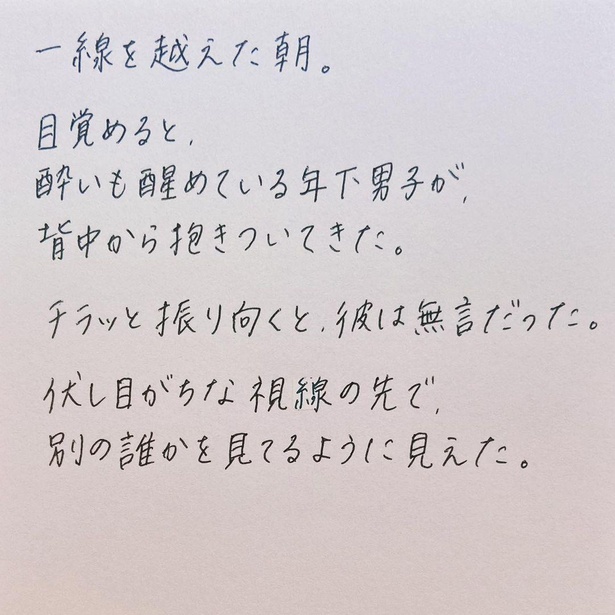 一線を越えた朝。
目覚めると、
酔いも醒めている年下男子が、
背中から抱きついてきた。
チラッと振り向くと、彼は無言だった。
伏し目がちな視線の先で、
別の誰かを見てるように見えた。